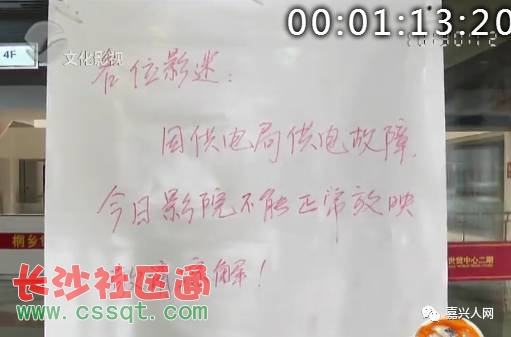 00:01:13:20
4F
文化影视
各位影迷:
因供电局供电故障,
今日影院不能正常放映
谅解!
桐乡
世贸中心二期
长沙社区通
www.cssqt.com
嘉兴人网